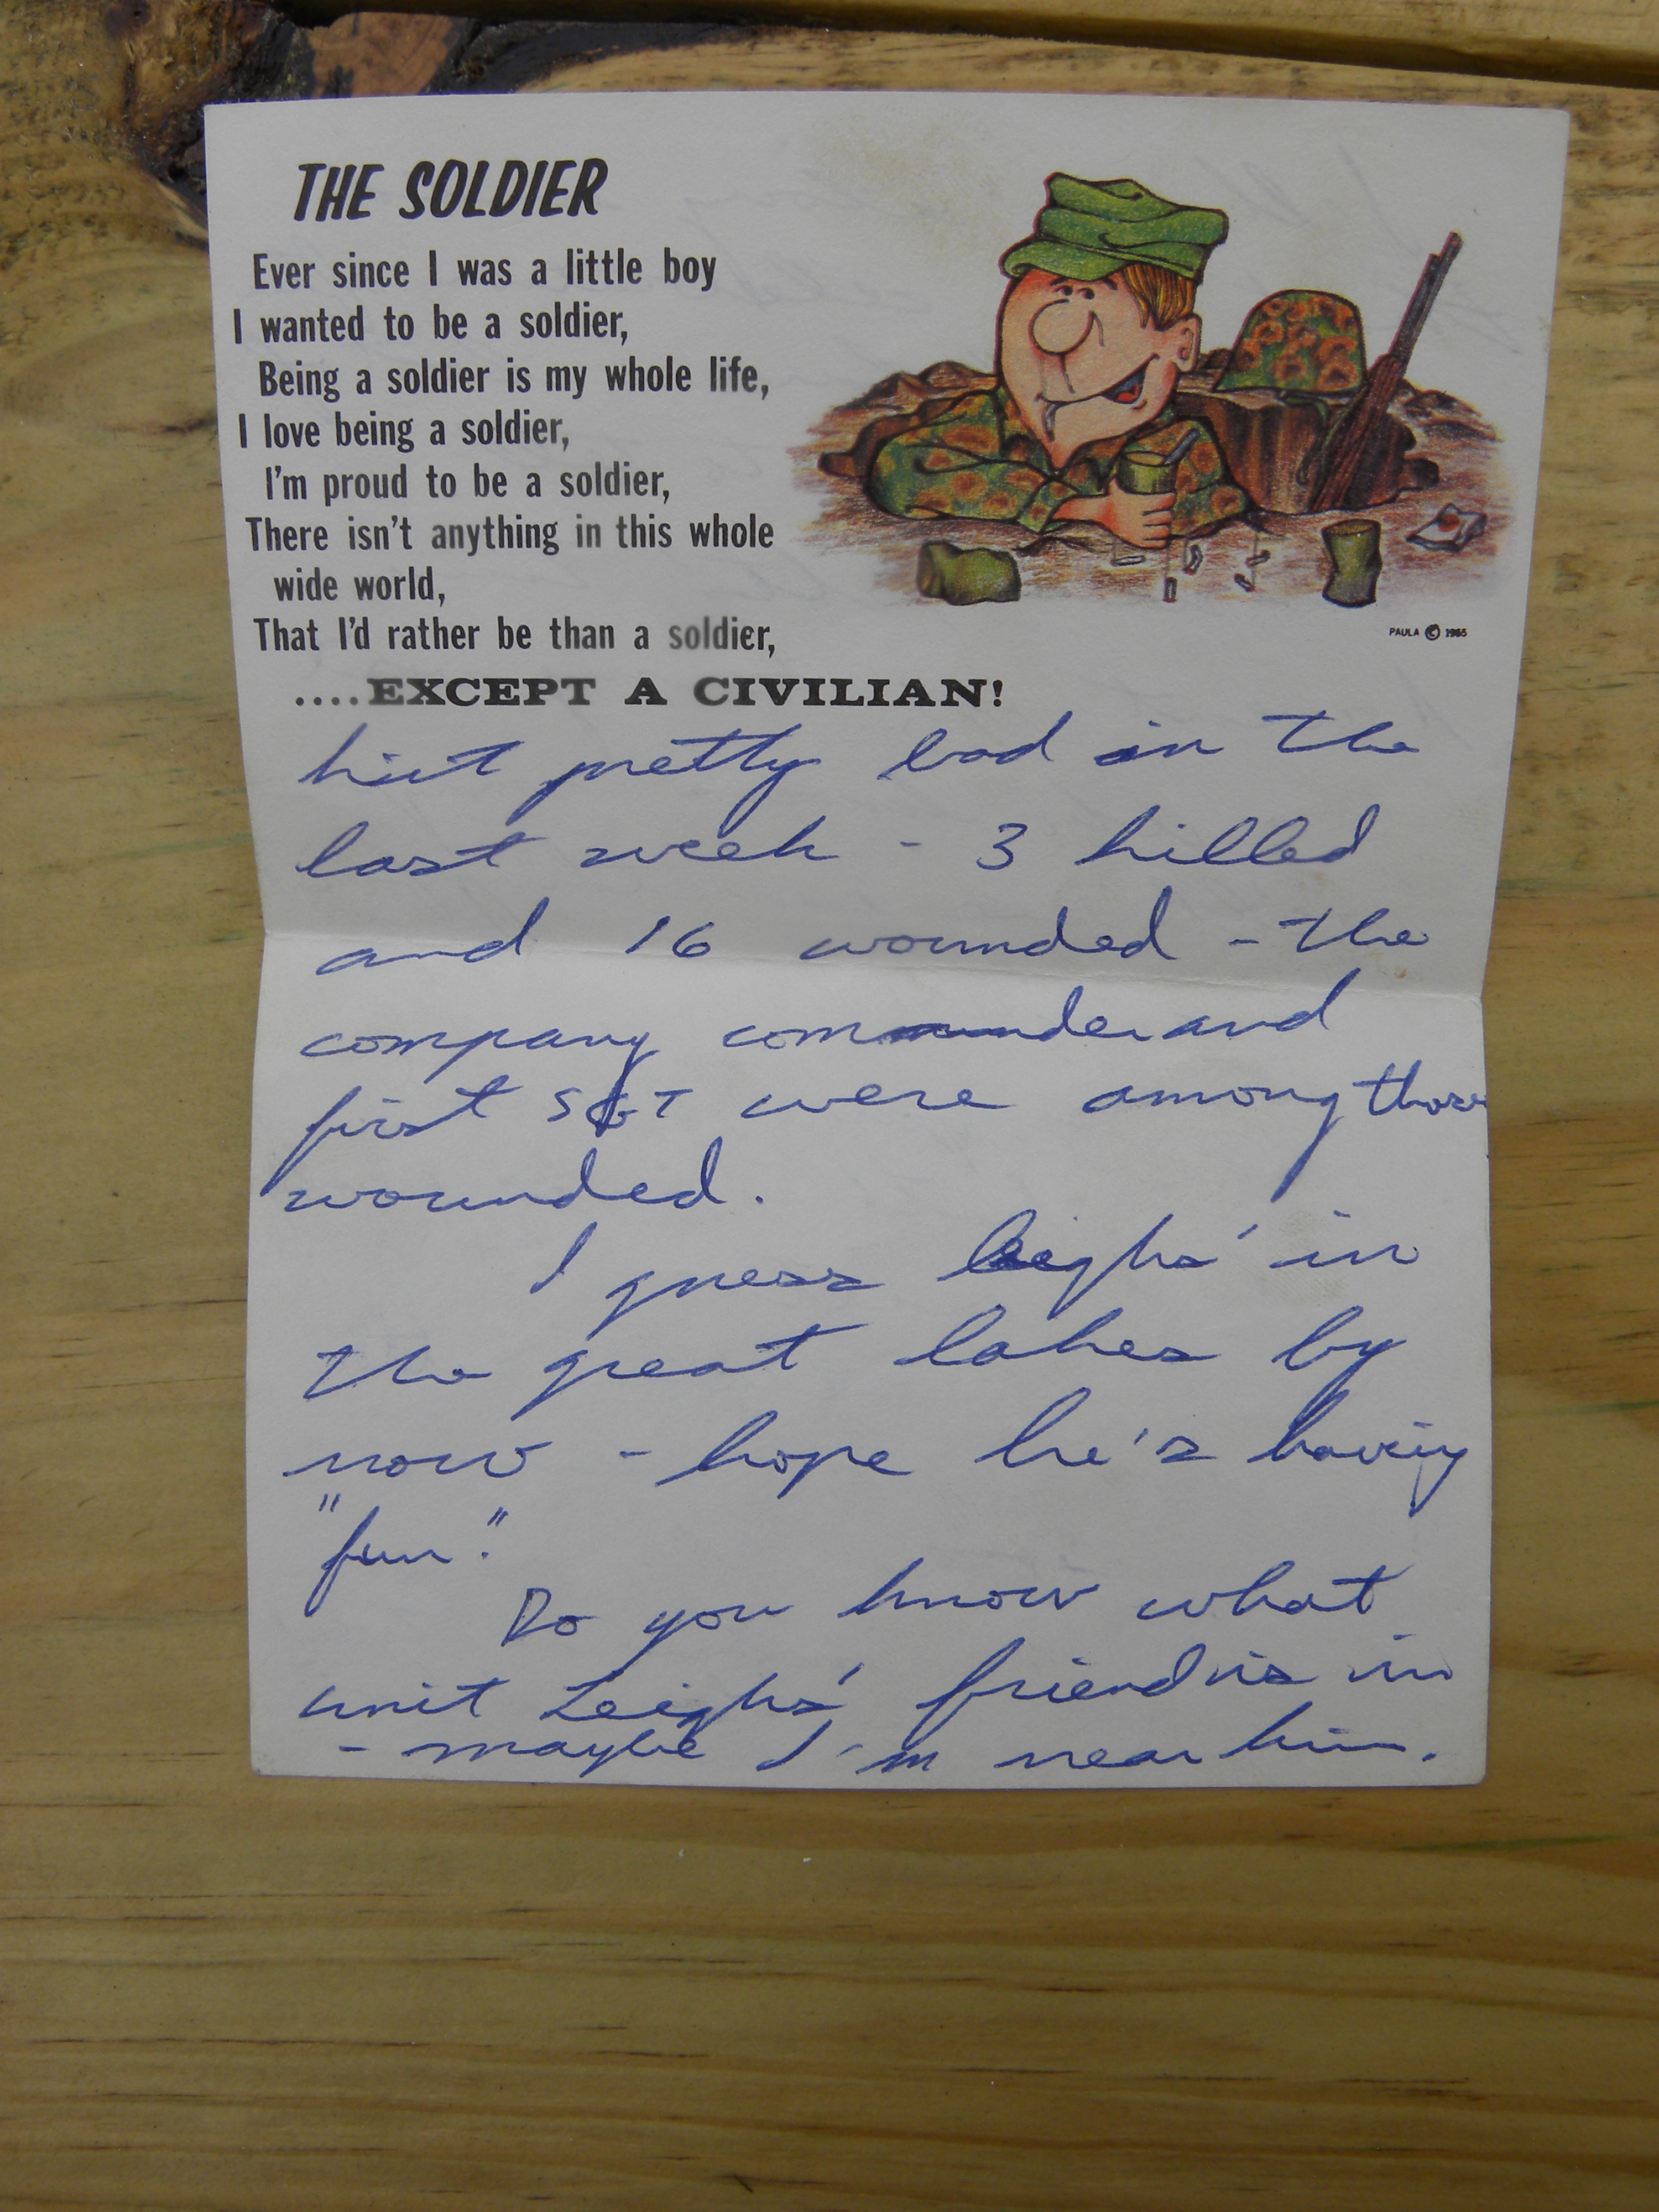 THE SOLDIER
Ever since I was a little boy
I wanted to be a soldier,
Being a soldier is my whole life,
I love being a soldier,
I'm proud to be a soldier,
There isn't anything in this whole
wide world,
That I'd rather be than a soldier,
....EXCEPT A CIVILIAN!
PAULA © 1965
hit pretty bad in the
last week - 3 killed
and 16 wounded - the
company commander and
first SGT were among those
wounded.
I guess Leighs' in
the great lakes by
now - hope he's having
"fun".
Do you know what
unit Leighs' friend is in
- maybe I'm near him.